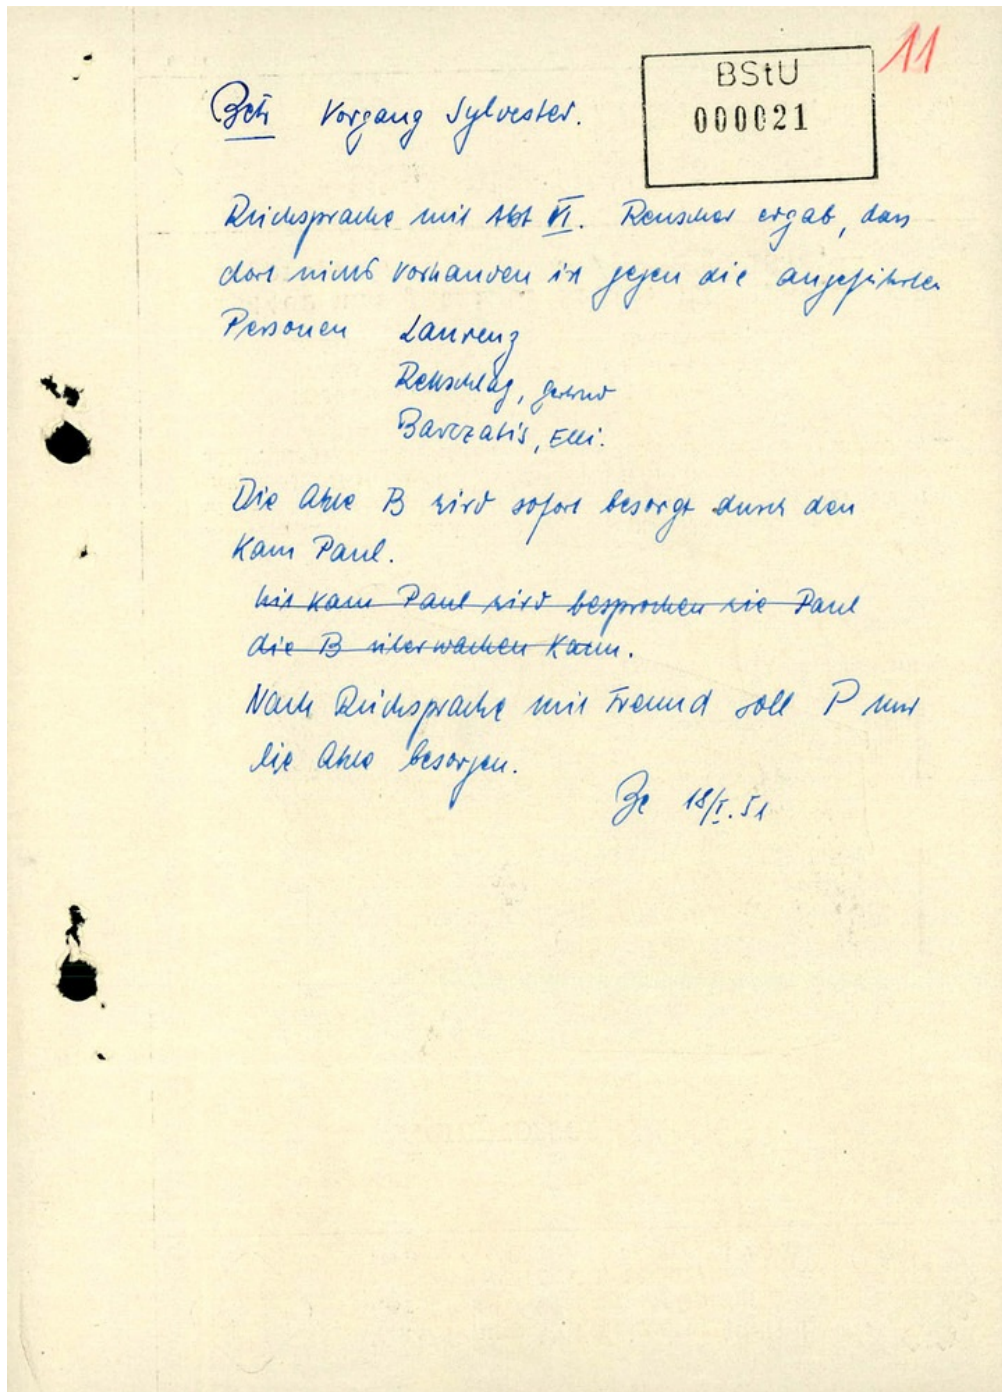 11
BStU
000021
Betr Vorgang Sylvester.
Rücksprache mit Abt VI. Renscher ergab, dass
dort nichts vorhanden ist gegen die angeführten
Personen Laurenz
Rebschlag, Gertrud
Barczatis, Elli.
Die Akte B wird sofort besorgt durch den
Kam Paul.
Mit Kam Paul wird besprochen wie Paul
die B überwachen kann.
Nach Rücksprache mit Freund soll P nur
die Akte besorgen.
Be 18/I.51